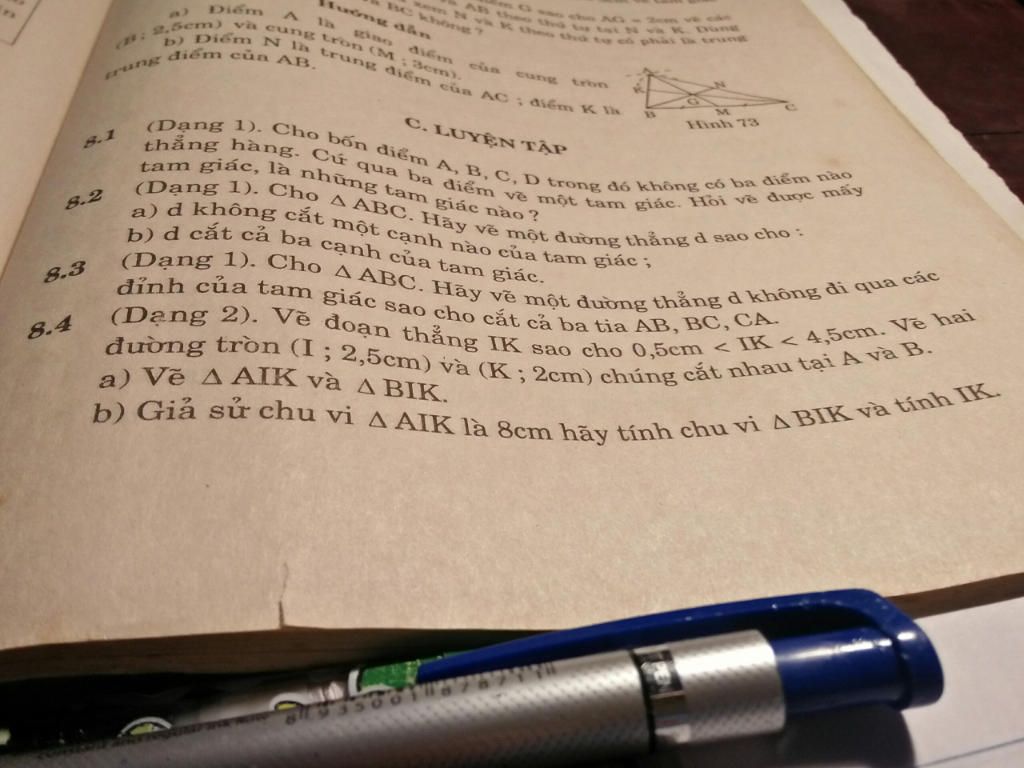 điểm G sao cho AG = 2cm vẽ các
và AB theo thứ tự tại N và K. Dùng
xem N và K theo thứ tự có phải là trung
và BC không ?
Hướng dẫn
a) Điểm A là giao điểm của cung tròn
(B ; 2,5cm) và cung tròn (M ; 3cm).
b) Điểm N là trung điểm của AC ; điểm K là
trung điểm của AB.
A
K
N
G
B
M
C
Hình 73
C. LUYỆN TẬP
8.1 (Dạng 1). Cho bốn điểm A, B, C, D trong đó không có ba điểm nào
thẳng hàng. Cứ qua ba điểm vẽ một tam giác. Hỏi vẽ được mấy
tam giác, là những tam giác nào ?
8.2 (Dạng 1). Cho Δ ABC. Hãy vẽ một đường thẳng d sao cho :
a) d không cắt một cạnh nào của tam giác ;
b) d cắt cả ba cạnh của tam giác.
8.3 (Dạng 1). Cho Δ ABC. Hãy vẽ một đường thẳng d không đi qua các
đỉnh của tam giác sao cho cắt cả ba tia AB, BC, CA.
8.4 (Dạng 2). Vẽ đoạn thẳng IK sao cho 0,5cm < IK < 4,5cm. Vẽ hai
đường tròn (I ; 2,5cm) và (K ; 2cm) chúng cắt nhau tại A và B.
a) Vẽ Δ AIK và Δ BIK.
b) Giả sử chu vi Δ AIK là 8cm hãy tính chu vi Δ BIK và tính IK.
8 935001 878711